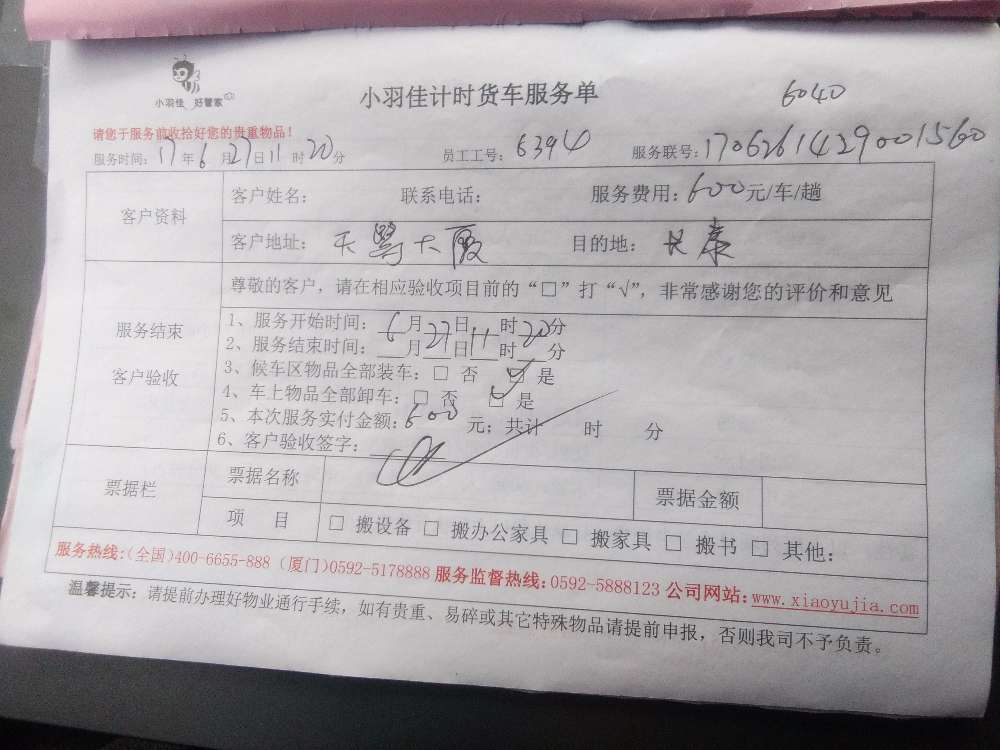 小羽佳 好管家
小羽佳计时货车服务单
6040
请您于服务前收拾好您的贵重物品！
服务时间：17年6月27日11时20分 员工工号：6394 服务联号：1706261429001560
客户资料
客户姓名： 联系电话： 服务费用：600元/车/趟
客户地址：天鹭大厦 目的地：长泰
服务结束
客户验收
尊敬的客户，请在相应验收项目前的“□”打“√”，非常感谢您的评价和意见
1、服务开始时间：6月27日11时20分
2、服务结束时间：__月__日__时__分
3、候车区物品全部装车：□ 否 ☑ 是
4、车上物品全部卸车：□ 否 ☑ 是
5、本次服务实付金额：600 元；共计 时 分
6、客户验收签字：
票据栏
票据名称 票据金额
项 目 □ 搬设备 □ 搬办公家具 □ 搬家具 □ 搬书 □ 其他：
服务热线：(全国)400-6655-888 (厦门)0592-5178888 服务监督热线：0592-5888123 公司网站：www.xiaoyujia.com
温馨提示：请提前办理好物业通行手续，如有贵重、易碎或其它特殊物品请提前申报，否则我司不予负责。